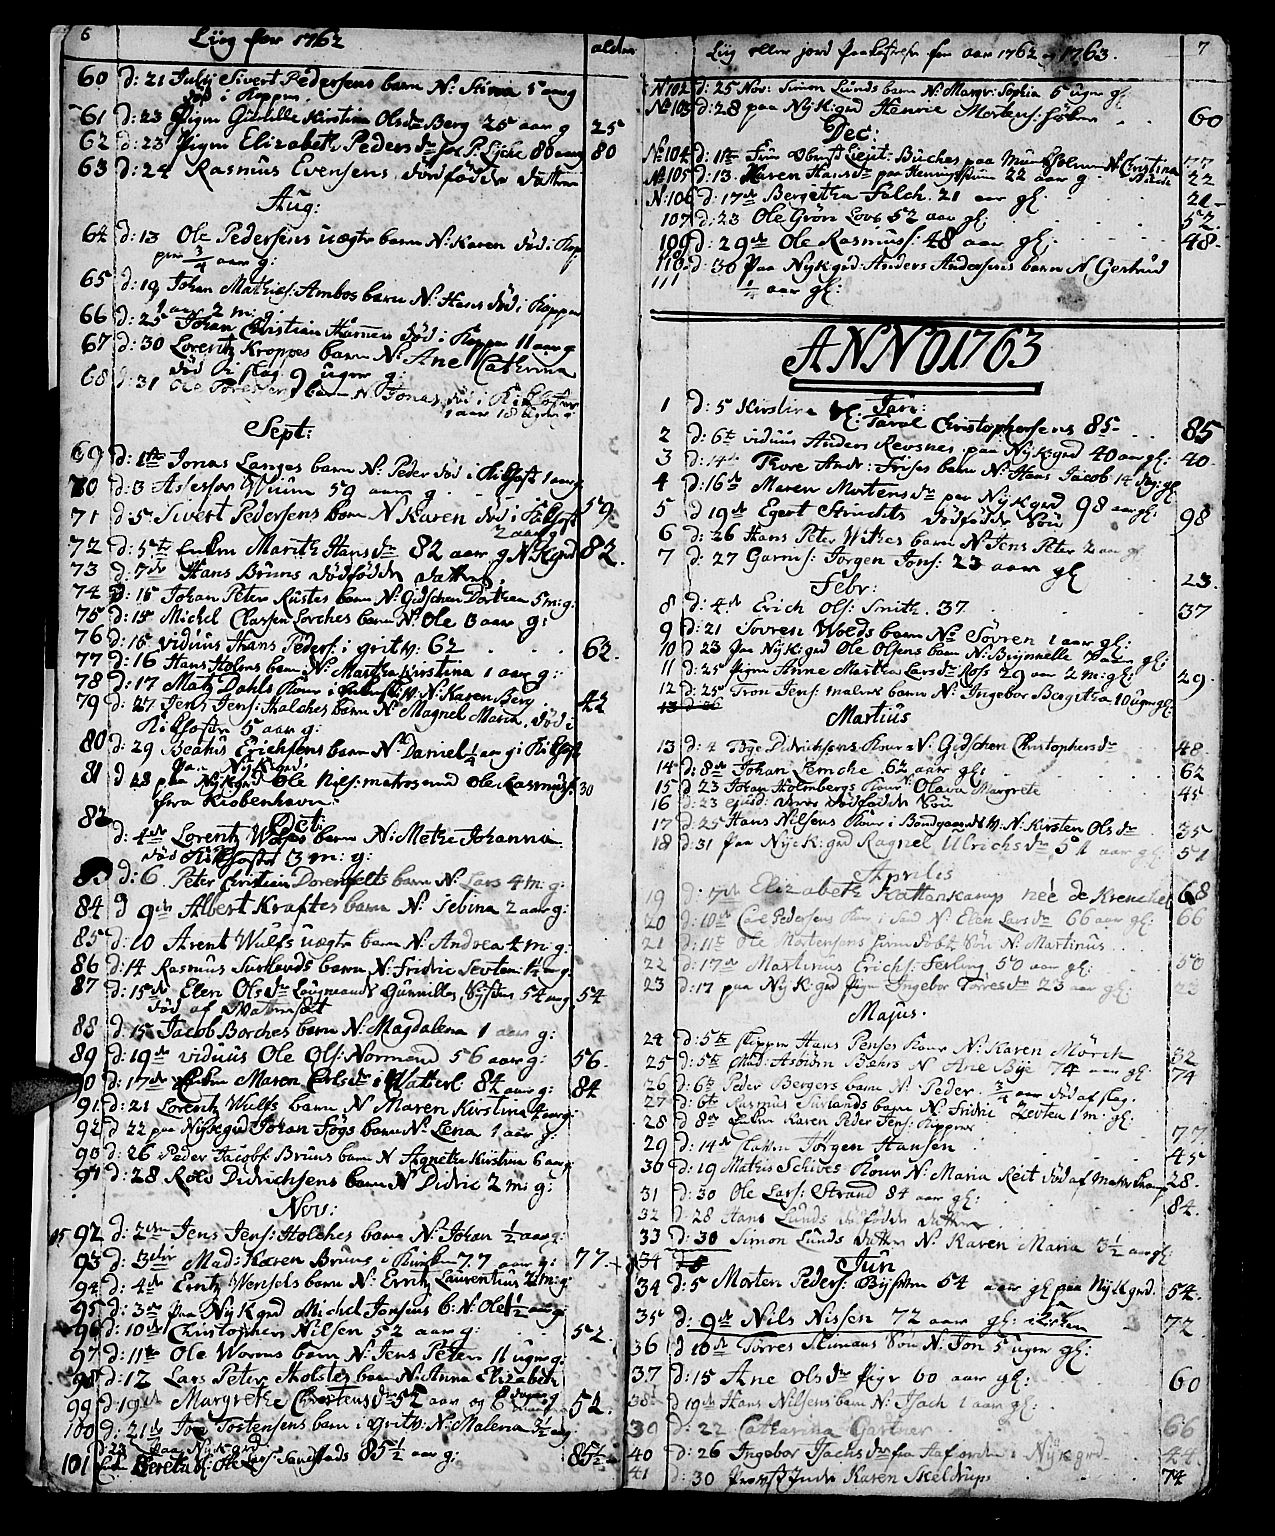 6 Liig for 1762 alder
60 d: 21 July Sivert Pedersens barn N: Stina 1 aar g
død i Kopper
61 d: 23 Pigen Gurtelle Kirstina Olsdr Berg 25 aar g 25
62 d: 23 Pigen Elizabeth Pedersdr 80 aar g 80
63 d: 24 Rasmus Evensens dødfødde datter
Aug:
64 d: 13 Ole Pedersens uægte barn N: Karen død i Kop
per 3/4 aar g:
65 d: 19 Johan Mathias: Ambos barn N: Hans død i Kopper
1 aar 2 m: g:
66 d: 25 Johan Christian død i Kopper 11 aar g
67 d: 30 Lorentz Kroppes barn N: Ane Cathrina
død i slag 9 uger g:
68 d: 31 Ole barn N: Jonas død i Kikhoste
1 aar 18 uger g
Sept:
69 d: 1te Jonas Langes barn N: Peder død i Kikhost 1 aar g
70 d: 3 Assessor Wium 59 aar g 59
71 d: 5 Sivert Pedersens barn N Karen død i Kikhoste
2 aar g
72 d: 5te Enken Marith Hansdr 82 aar g N:Kgrd 82.
73 d: 7de Hans Bruns dødfødde datter
74 d: 15 Johan Peter Rustes barn N: Gidschen Dorthea 5 m: g:
75 d: 15 Michel Classen Lorches barn N: Ole 3 aar g:
76 d: 15 viduus Hans Peders: i gritw: 62 62.
77 d: 16 Hans Holms barn N: Martha Kirstina 1 aar g:
78 d: 17 Matz Dahls Kone i N: Karen Berg 42
79 d: 27 Jens Jens: Holches barn N: Magnel Maria død i
Kikhoste 5 aar g:
80 d: 29 Beatus Erichsens barn N: Daniel 1/4 aar g i Kikhost
paa Nykgrd:
81 d 28 paa Nykgrd Ole Nils: matros med Ole Rasmus: 30
fra Kiobenhavn:
Oct:
82 d: 4de Lorentz Wulfs barn N: Metha Johanna
død Kikhoste 3 m: g:
83 d: 6 Peter Christian Dorenfelts barn N: Lars 4 m: g:
84 d 9de Albert Kraftes barn N: Sebina 2 aar g:
85 d: 10 Arent Wulfs uægte barn N: Andrea 4 m: g:
86 d: 14 Rasmus Surlands barn N: Fridric Levten: 1 1/2 aar g.
87 d: 15de Elen Olsdr Gunnilles Syster 54 aar g 54
død af
88 d: 15 Jacob Borches barn N: Magdalena 1 aar g:
89 d: 19de viduus Ole Ols: Normand 56 aar g: 56.
90 d: 17de Enken Maren Carlsdr i 84 aar g: 84
91 d: 21 Lorentz Wulfs barn N: Maren Kirstina 4 aar g:
92 d 22 paa Nykgrd Johan Fogs barn N: Lena 1 aar g:
90 d: 26 Peder Jacobs: Bruns barn N: Agnetha Kirstina 6 aar g:
91 d: 28 Rols Didrichsens barn N: Didric 2 m: g:
Nov:
92 d: 2den Jens Jens: Holches barn N: Johan 1/2 aar g:
93 d: 3die Mad: Karen Bruns i Kirken 77 aar g: 77.
94 d: 4de Erntz Wensels barn N: Erntz Laurentius 2 m: g
95 d: 3de paa Nykgrd Michel Jonsens b: N: Ole 1 1/2 aar g:
96 d: 10de Christopher Nilsen 52 aar g: 52.
97 d: 11te Ole Worms barn N: Jens Peter 11 uger g:
98 d: 12 Lars Peter Holstes barn N: Anna Elizabeth
99 d: 19de Margrethe Chrestensdr 52 aar og 8 dager g 52.
100 d: 21de Joe Tostensens barn i gritw: N: Malena 3 1/2 aar g
d: 23 paa Nykgrd
101 Enken Bereta Ole Lars: Sandstads 85 1/2 aar g: 85 1/2
Liig eller jord paakastelse for aar 1762 og 1763. 7
No 102 d: 25 Nov: Simon Lunds barn N: Margr: Sophia 5 uger gl:
No 103 d: 28 paa Nyk:grd Henric Mortens: 60
Dec:
No 104 d: 11te Frue Oberst Liejt: Büches paa Munkholmen N Christina 77
No 105 d: 13. Karen Hansdr paa 22 aar g 22
N: 106 d: 17de Bergetha Falch. 21 aar gl: 21
107 d: 23 Ole Grøn Lovs 52 aar gl: 52.
109 d: 29de Ole Rasmus: 48 aar gl: 48
110. d: 30 paa Nykgrd: Anders Andersens barn N Gertrud
111 1/4 aar gl:
ANNO 1763
Jan:
1 d: 5 Kirstina Christophersens 85 85
2 d: 6te viduus Anders Revsnes paa Nykgrd 40 aar gl: 40
3 d: 14de Thore Andr: Frises barn N: Hans Jacob 14 dag: gl
4 d: 16de Maren Mortensdr paa Nykgrd 98 aar gl: 98
5 d 19de Egert Strichts dødfødde Søn
6 d: 26 Hans Peter Witches barn N: Jens Peter 2 aar gl
7 d: 27 Garns: Jørgen Jons: 23 aar gl 23.
Febr:
8 d: 4de Erich Ols: Smith. 37 37
9 d: 21 Sovren Wolds barn N: Søvren 1 aar gl:
10 d 23 paa Nyk:grd Ole Olsens barn N: Brynnelle gl:
11 d: 25 pigen Anne Martha Larsdr Foss 29 aar 2 m: gl 29
12 d: 25 Tron Jens: barn N: Ingebor Bergitha 10 uger gl:
13 d 26
Martius
13 d: 4 Tyge Didrichsens Kone N: Gidschen Christophersdr 48
14 d: 8de Johan Lemche 62 aar gl: 62
15 d 23 Johan Holmbergs Kone Olava Margrete 45
16 d: 23 ejusd: deres dødfødde Søn
17 d: 25 Hans Nilsens Kone i Bondgaard N. Kirsten Olsdr 35
18 d: 31 paa Nyk:grd Ragnel Ulrichsdr 51 aar gl 51
Aprilis
19 d: 7de Elizabeth Kattenkamp née de Krenchel 68
20 d: 10de Carl Pedersens Kone i Sand N: Elen Larsdr 66 aar gl: 66
21 d: 11te Ole Mortensens hiemdøbt Søn N: Martinus
22 d: 17de Martinus Erichs: Ferling 50 aar gl: 50
23 d: 17 paa Nyk:grd pigen Ingebor Torresdr 23 aar gl: 23
Majus.
24 d: 5te Skipper Hans Pensos Kone N: Karen Mörch 32
25 d: 5te Mad: Asbiörn Bachrs N: Ane Bye 74 aar gl: 74
26 d: 6te Peder Bergers barn N: Peder 3/4 aar død af slag.
27 d: 6te Rasmus Surlands barn N: Fridric Levten 1 m: gl:
28 d 8de Enken Karen Peder Jens: Skippers 77.
29 d: 14de Jørgen Hansen 45
30 d: 19 Mathis Schives Kone N: Maria Reit død af 28.
31 d: 30 Ole Lars: Strand 84 aar gl: 84.
32 d: 28 Hans Lunds dødfødde datter
33 d: 30 Simon Lunds datter N: Karen Maria 3 1/2 aar gl:
34 d 8 Jun
34 d: 5 Morten Peders: Bysten 54 aar gl paa Nykgrd. 54.
35 d: 9de Nils Nissen 72 aar gl: i Kirken 72
36 d 10de Torres Stumans Søn N: Jon 5 uger gl:
37 d: 15 Ane Olsdr pige 60 aar gl: 60
38 d 19de Hans Nilsens barn N: Isach 1 aar gl:
39 d: 22 Catharina Gartner 66
40 d: 26 Ingebor Isachsdr fra Hafjorden i Nykgrd 44
41 d: 30 provst Inde Karen Skeldrups 74